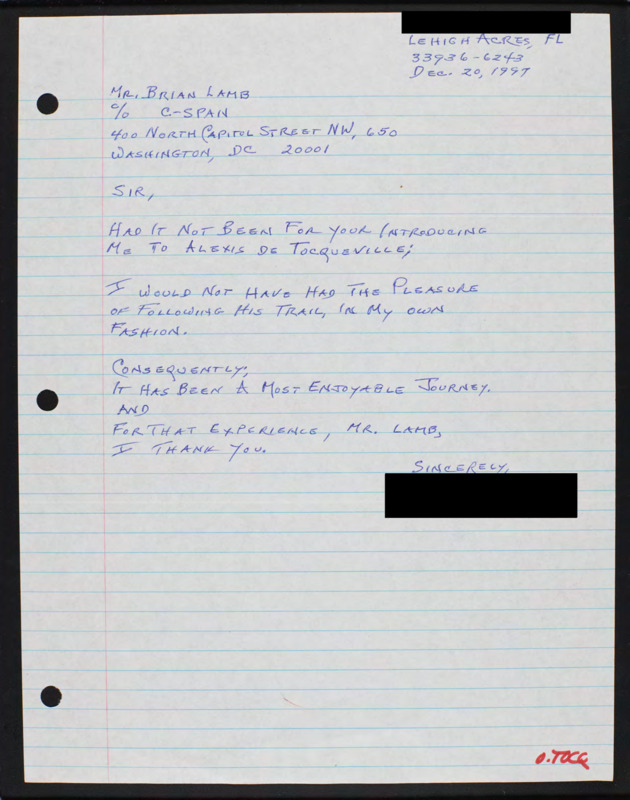 LEHIGH ACRES, FL
33936-6243
DEC. 20, 1997
MR. BRIAN LAMB
c/o C-SPAN
400 NORTH CAPITOL STREET NW, 650
WASHINGTON, DC 20001
SIR,
HAD IT NOT BEEN FOR YOUR INTRODUCING
ME TO ALEXIS DE TOCQUEVILLE;
I WOULD NOT HAVE HAD THE PLEASURE
OF FOLLOWING HIS TRAIL, IN MY OWN
FASHION.
CONSEQUENTLY,
IT HAS BEEN A MOST ENJOYABLE JOURNEY.
AND
FOR THAT EXPERIENCE, MR. LAMB,
I THANK YOU.
SINCERELY,
O.TOCQ